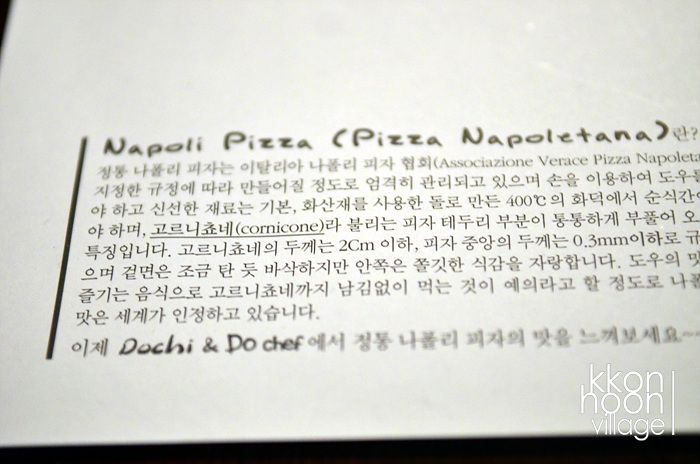 Napoli Pizza (Pizza Napoletana)란?
정통 나폴리 피자는 이탈리아 나폴리 피자 협회(Associazione Verace Pizza Napoleta
지정한 규정에 따라 만들어질 정도로 엄격히 관리되고 있으며 손을 이용하여 도우를
야 하고 신선한 재료는 기본, 화산재를 사용한 돌로 만든 400℃의 화덕에서 순식간
야 하며, 고르니쵸네(cornicone)라 불리는 피자 테두리 부분이 통통하게 부풀어 오
특징입니다. 고르니쵸네의 두께는 2Cm 이하, 피자 중앙의 두께는 0.3mm이하로 규
으며 겉면은 조금 탄 듯 바삭하지만 안쪽은 쫄깃한 식감을 자랑합니다. 도우의 맛
즐기는 음식으로 고르니쵸네까지 남김없이 먹는 것이 예의라고 할 정도로 나폴
맛은 세계가 인정하고 있습니다.
이제 Dochi & DO chef에서 정통 나폴리 피자의 맛을 느껴보세요~
kkon
hoon
village